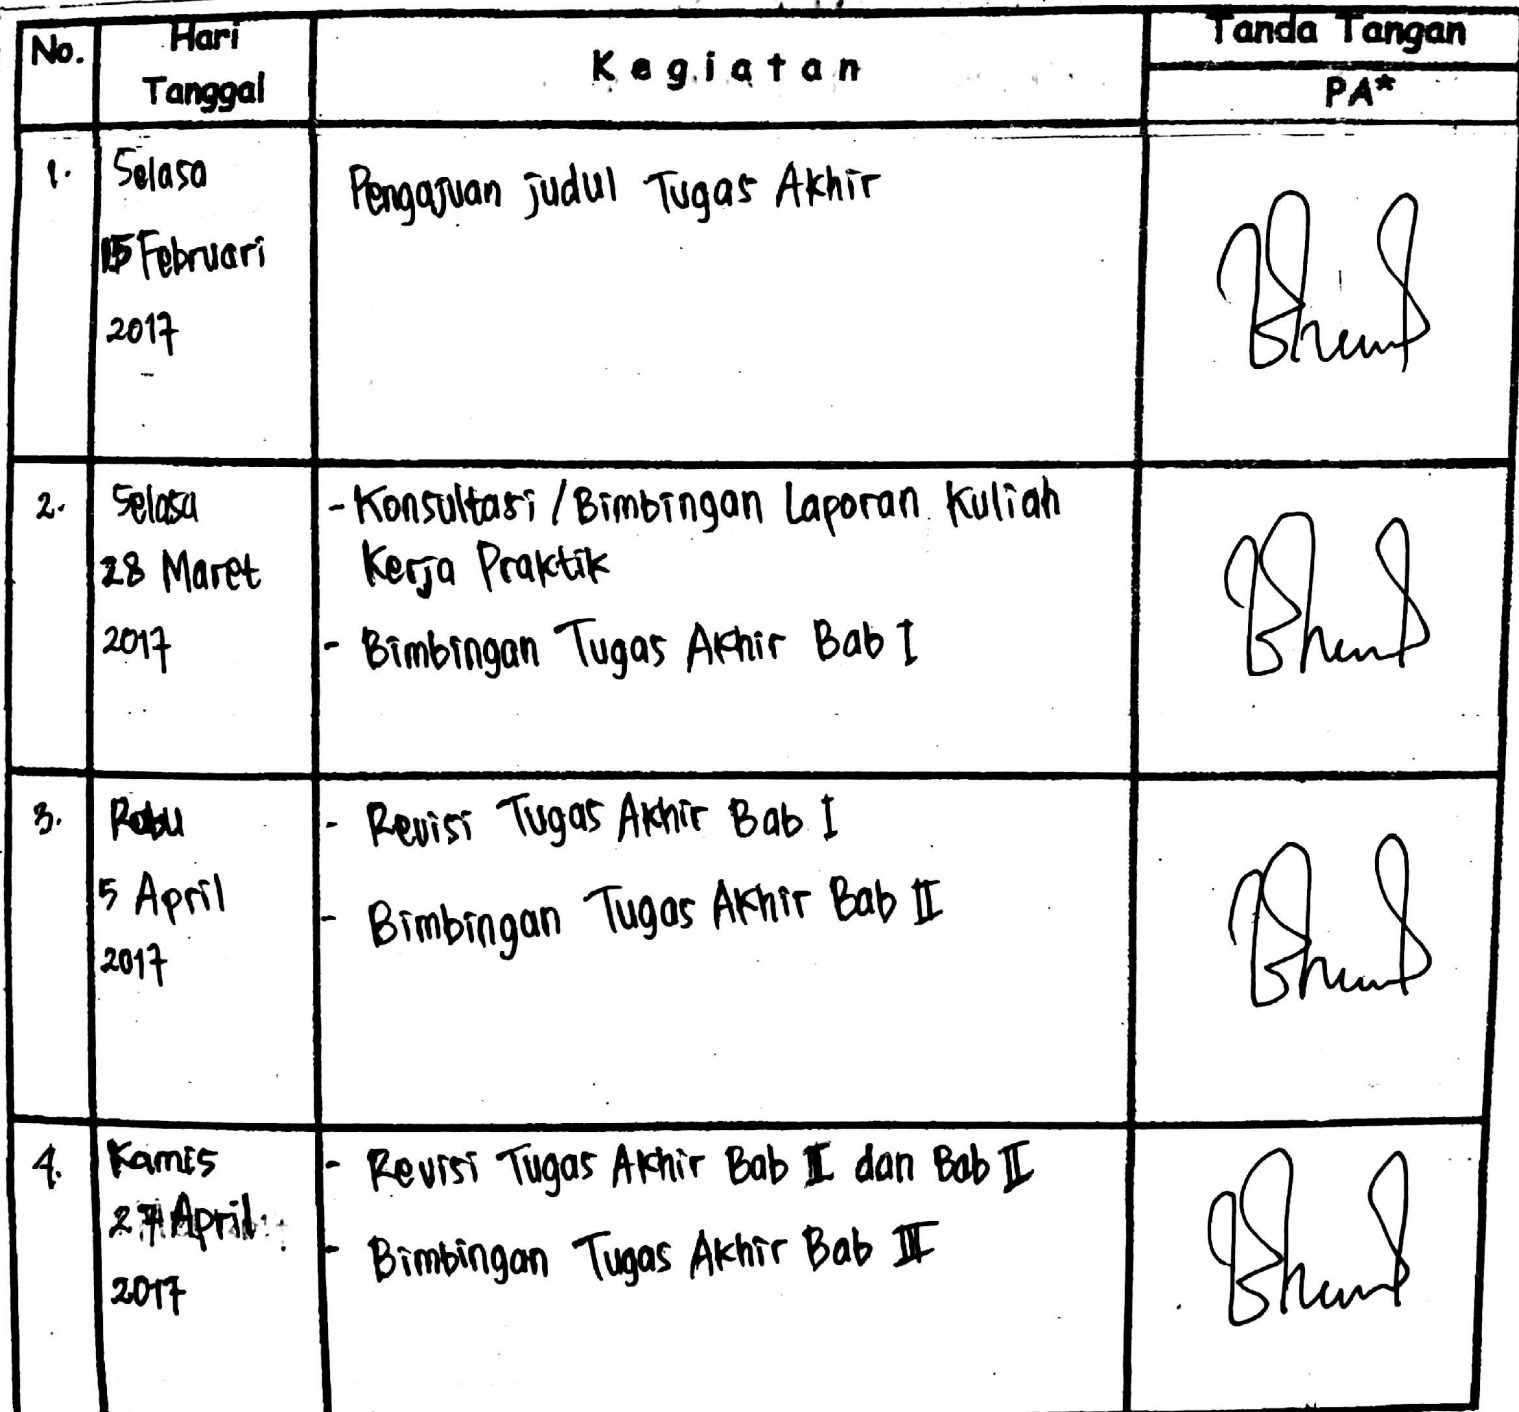 No.
Hari
Tanggal
Kegiatan
Tanda Tangan
PA*
1.
Selasa
15 Februari
2017
Pengajuan judul Tugas Akhir
2.
Selasa
28 Maret
2017
- Konsultasi / Bimbingan Laporan Kuliah
Kerja Praktik
- Bimbingan Tugas Akhir Bab I
3.
Rabu
5 April
2017
- Revisi Tugas Akhir Bab I
- Bimbingan Tugas Akhir Bab II
4.
Kamis
27 April
2017
- Revisi Tugas Akhir Bab I dan Bab II
- Bimbingan Tugas Akhir Bab III